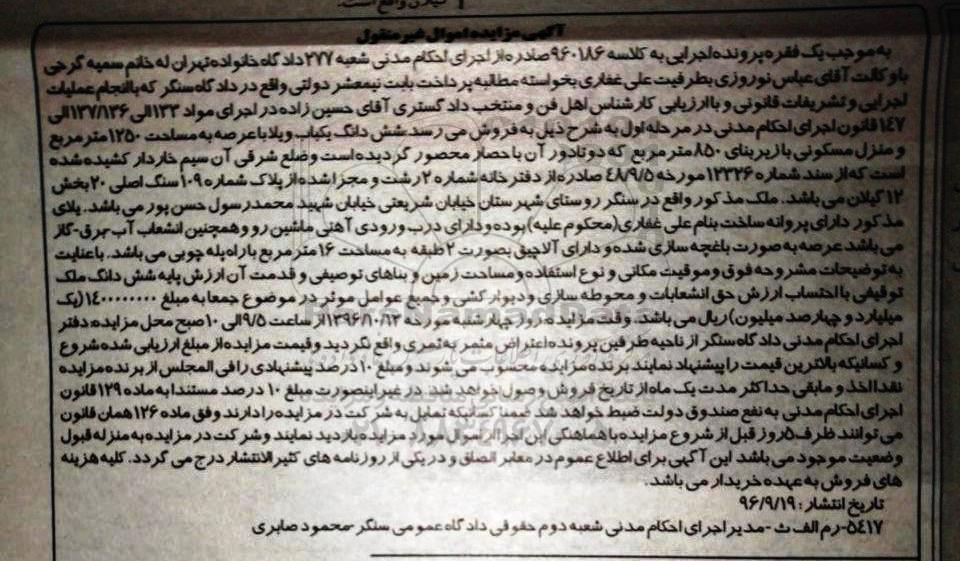 گیلان واقع است.
آگهی مزایده اموال غیر منقول
به موجب یک فقره پرونده اجرایی به کلاسه ۹۶۰۱۸۶ صادره از اجرای احکام مدنی شعبه ۲۷۷ دادگاه خانواده تهران له خانم سمیه گرجی
با وکالت آقای عباس نوروزی بطرفیت علی غفاری بخواسته مطالبه پرداخت بابت نیمعشر دولتی واقع در دادگاه سنگر که با انجام عملیات
اجرایی و تشریفات قانونی و با ارزیابی کارشناس اهل فن و منتخب دادگستری آقای حسین زاده در اجرای مواد ۱۳۳ الی ۱۳۷/۱۳۶ الی
۱۴۷ قانون اجرای احکام مدنی در مرحله اول به شرح ذیل به فروش می رسد. شش دانگ یکباب ویلا با عرصه به مساحت ۱۲۵۰ متر مربع
و منزل مسکونی با زیر بنای ۸۵۰ متر مربع که دو تا دور آن با حصار محصور گردیده است و ضلع شرقی آن سیم خاردار کشیده شده
است که از سند شماره ۱۲۳۲۶ مورخه ۴۸/۹/۵ صادره از دفتر خانه شماره ۲ رشت و مجزا شده از پلاک شماره ۱۰۹ سنگ اصلی ۲۰ بخش
۱۲ گیلان می باشد. ملک مذکور واقع در سنگر روستای شهرستان خیابان شریعتی خیابان شهید محمدرسول حسن پور می باشد. پلای
مذکور دارای پروانه ساخت بنام علی غفاری (محکوم علیه) بوده و دارای درب ورودی آهنی ماشین رو و همچنین انشعاب آب-برق-گاز
می باشد عرصه به صورت باغچه سازی شده و دارای آلاچیق بصورت ۲ طبقه به مساحت ۱۶ متر مربع با راه پله چوبی می باشد. با عنایت
به توضیحات مشروحه فوق و موقیت مکانی و نوع استفاده و مساحت زمین و بناهای توصیفی و قدمت آن ارزش پایه شش دانگ ملک
توقیفی با احتساب ارزش حق انشعابات و محوطه سازی و دیوار کشی و جمیع عوامل موثر در موضوع جمعا به مبلغ ۱۴۰۰۰۰۰۰۰۰۰ (یک
میلیارد و چهارصد میلیون) ریال می باشد. وقت مزایده روز چهارشنبه مورخه ۱۳۹۶/۱۰/۱۳ از ساعت ۹/۵ الی ۱۰ صبح محل مزایده: دفتر
اجرای احکام مدنی دادگاه سنگر از ناحیه طرفین پرونده اعتراض مثمر به ثمری واقع نگردید و قیمت مزایده از مبلغ ارزیابی شده شروع
و کسانیکه بالاترین قیمت را پیشنهاد نمایند برنده مزایده محسوب می شوند و مبلغ ۱۰ درصد پیشنهادی را فی المجلس از برنده مزایده
نقدا اخذ و مابقی حداکثر مدت یک ماه از تاریخ فروش وصول خواهد شد. در غیر اینصورت مبلغ ۱۰ درصد مستندا به ماده ۱۲۹ قانون
اجرای احکام مدنی به نفع صندوق دولت ضبط خواهد شد ضمنا کسانیکه تمایل به شرکت در مزایده را دارند وفق ماده ۱۲۶ همان قانون
می توانند ظرف ۵ روز قبل از شروع مزایده با هماهنگی این اجرا از اموال مورد مزایده بازدید نمایند و شرکت در مزایده به منزله قبول
وضعیت موجود می باشد این آگهی برای اطلاع عموم در معابر الصاق و در یکی از روزنامه های کثیرالانتشار درج می گردد. کلیه هزینه
های فروش به عهده خریدار می باشد.
تاریخ انتشار: ۹۶/۹/۱۹
۵۴۱۷-رم الف ث -مدیر اجرای احکام مدنی شعبه دوم حقوقی دادگاه عمومی سنگر -محمود صابری